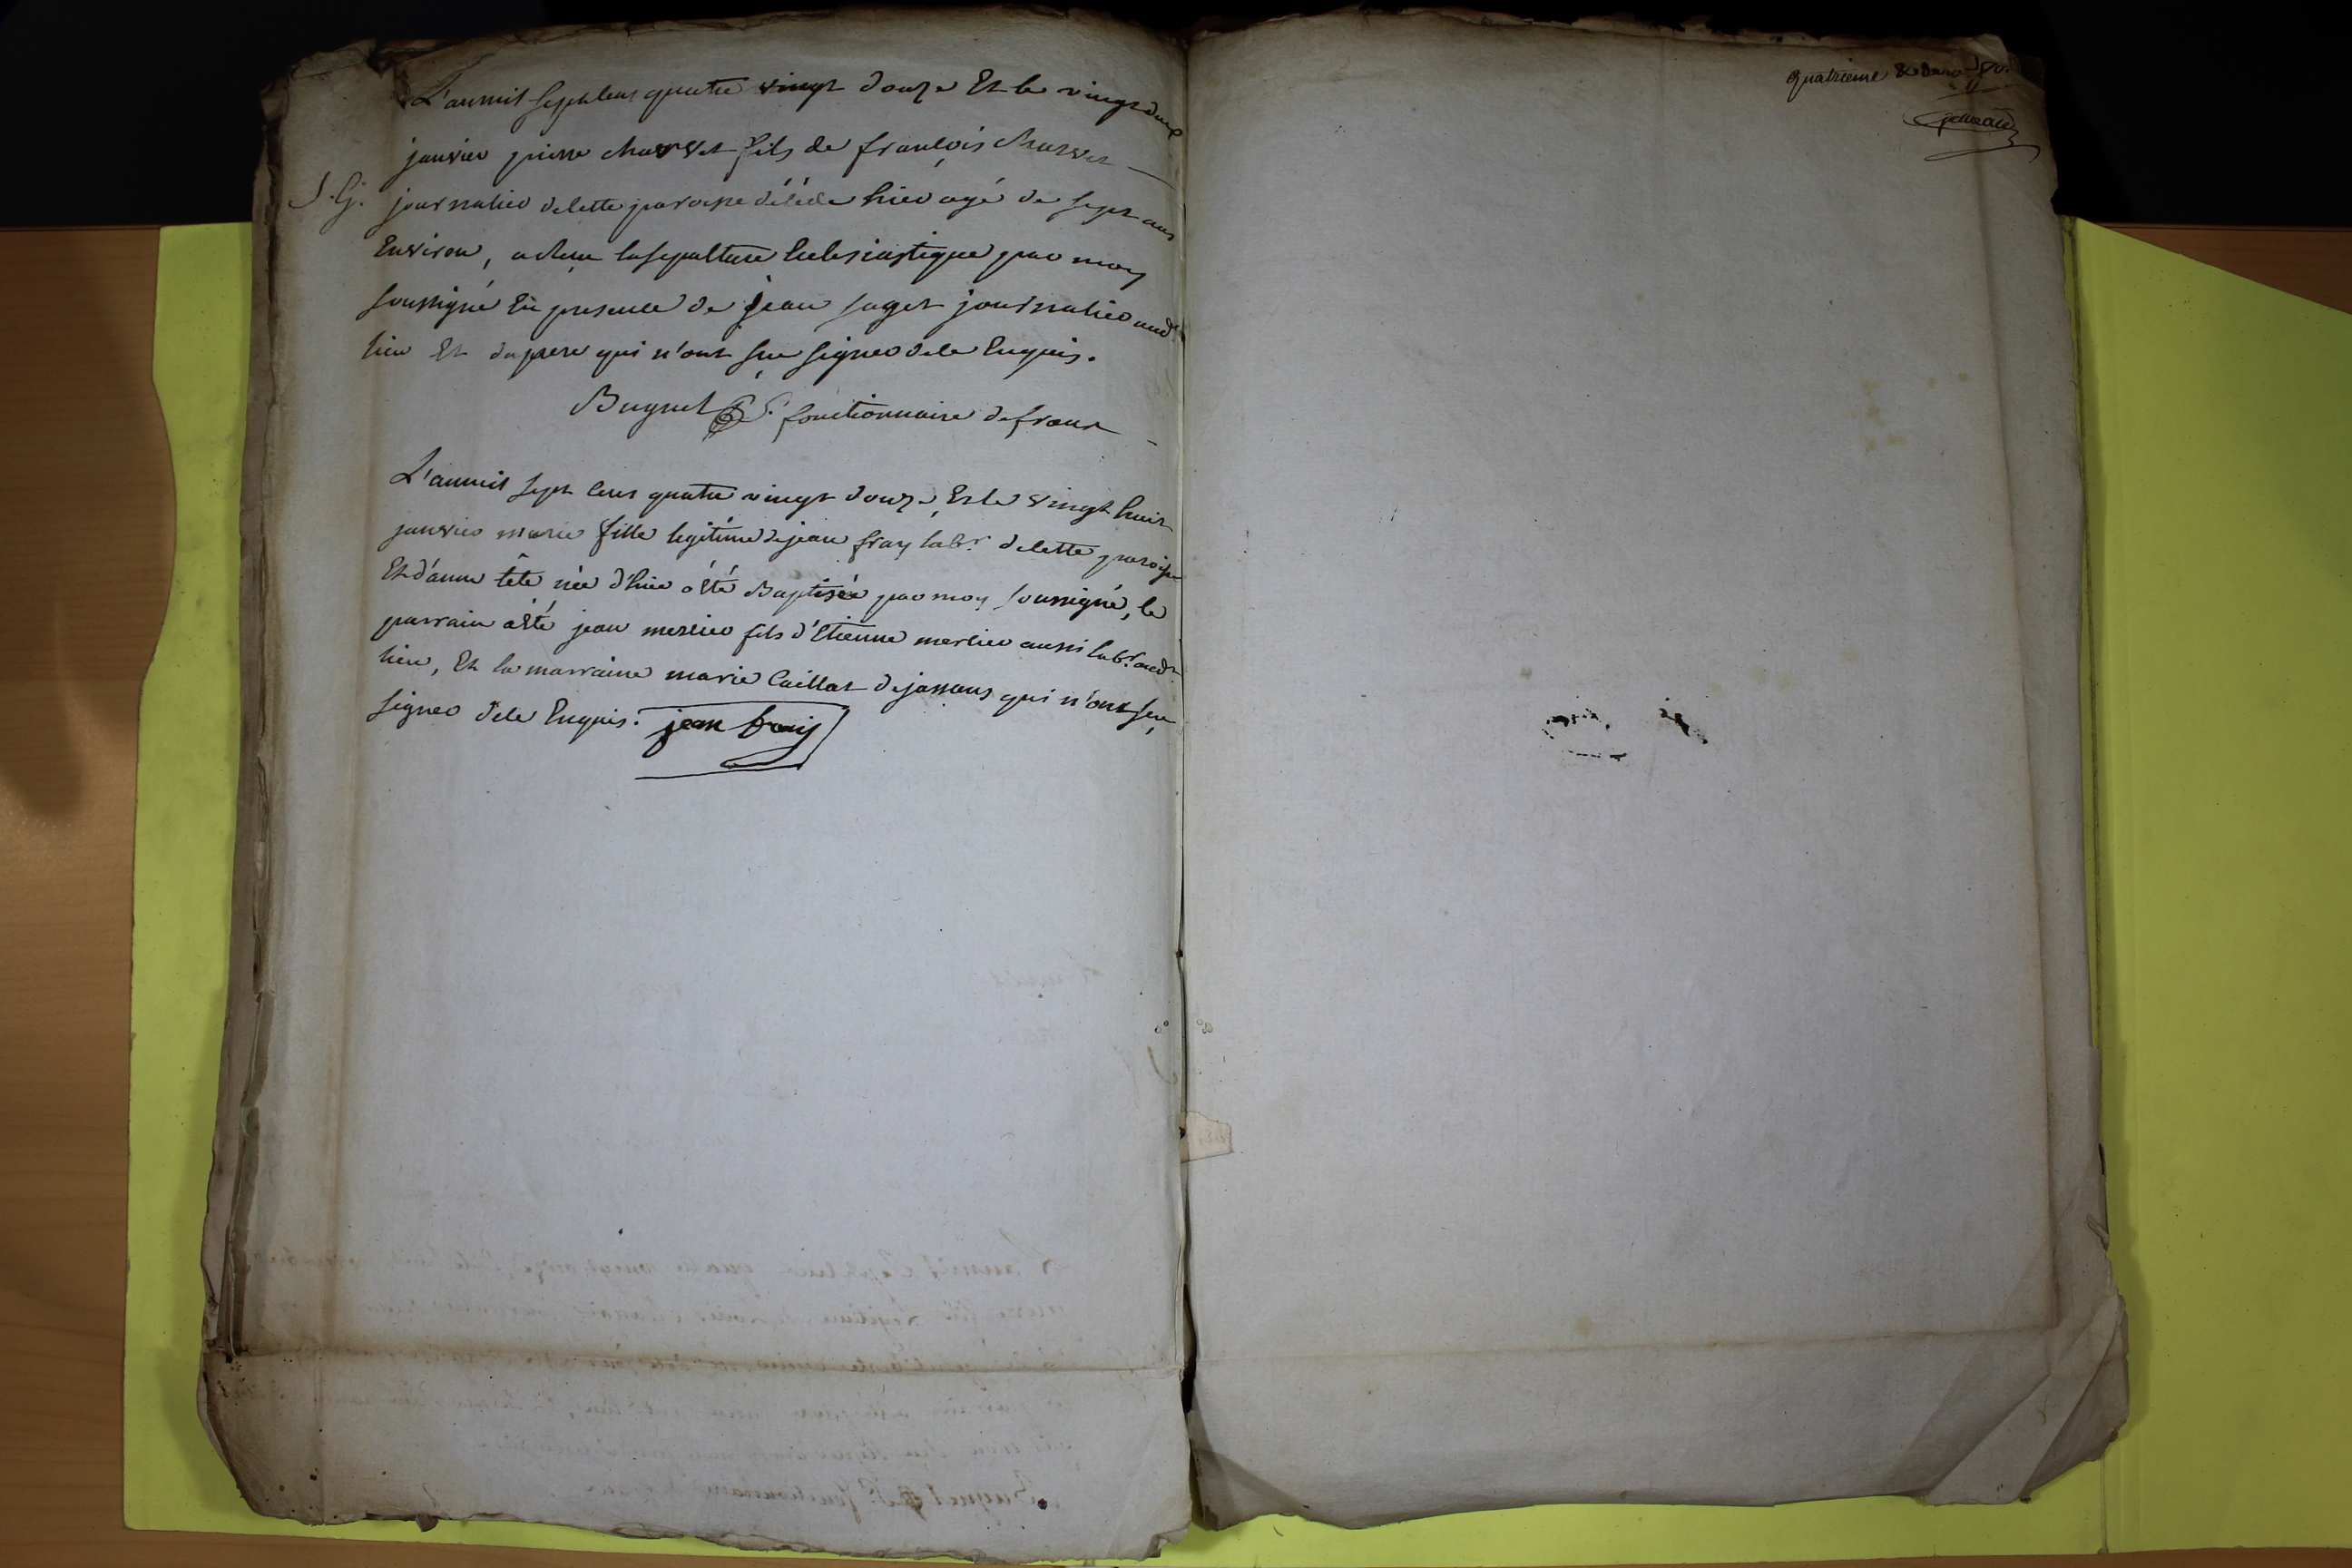 L'anmil sept cens quatre vingt douze Et le vingt deux
janvier pierre charvet fils de françois Charvet
S. G. journalier de cette paroisse décédé hier agé de sept ans
Environ, a reçu la sepulture Ecclesiastique par moy
soussigné En presence de jean sujet journalier aud.
lieu Et du pere qui n'ont sçu signer de ce Enquis.
Buynet fonctionnaire de frans
L'anmil sept cens quatre vingt douze, Et le vingt huit
janvier marie fille legitime de jean fray labr. de cette paroisse
Et d'anne tête née d'hier a été Baptisée par moy soussigné, le
parrain a été jean mercier fils d'Etienne mercier aussi labr. aud.
lieu, Et la marraine marie Caillat de jassans qui n'ont sçu
signer de ce Enquis. jean fraij
quatrieme &